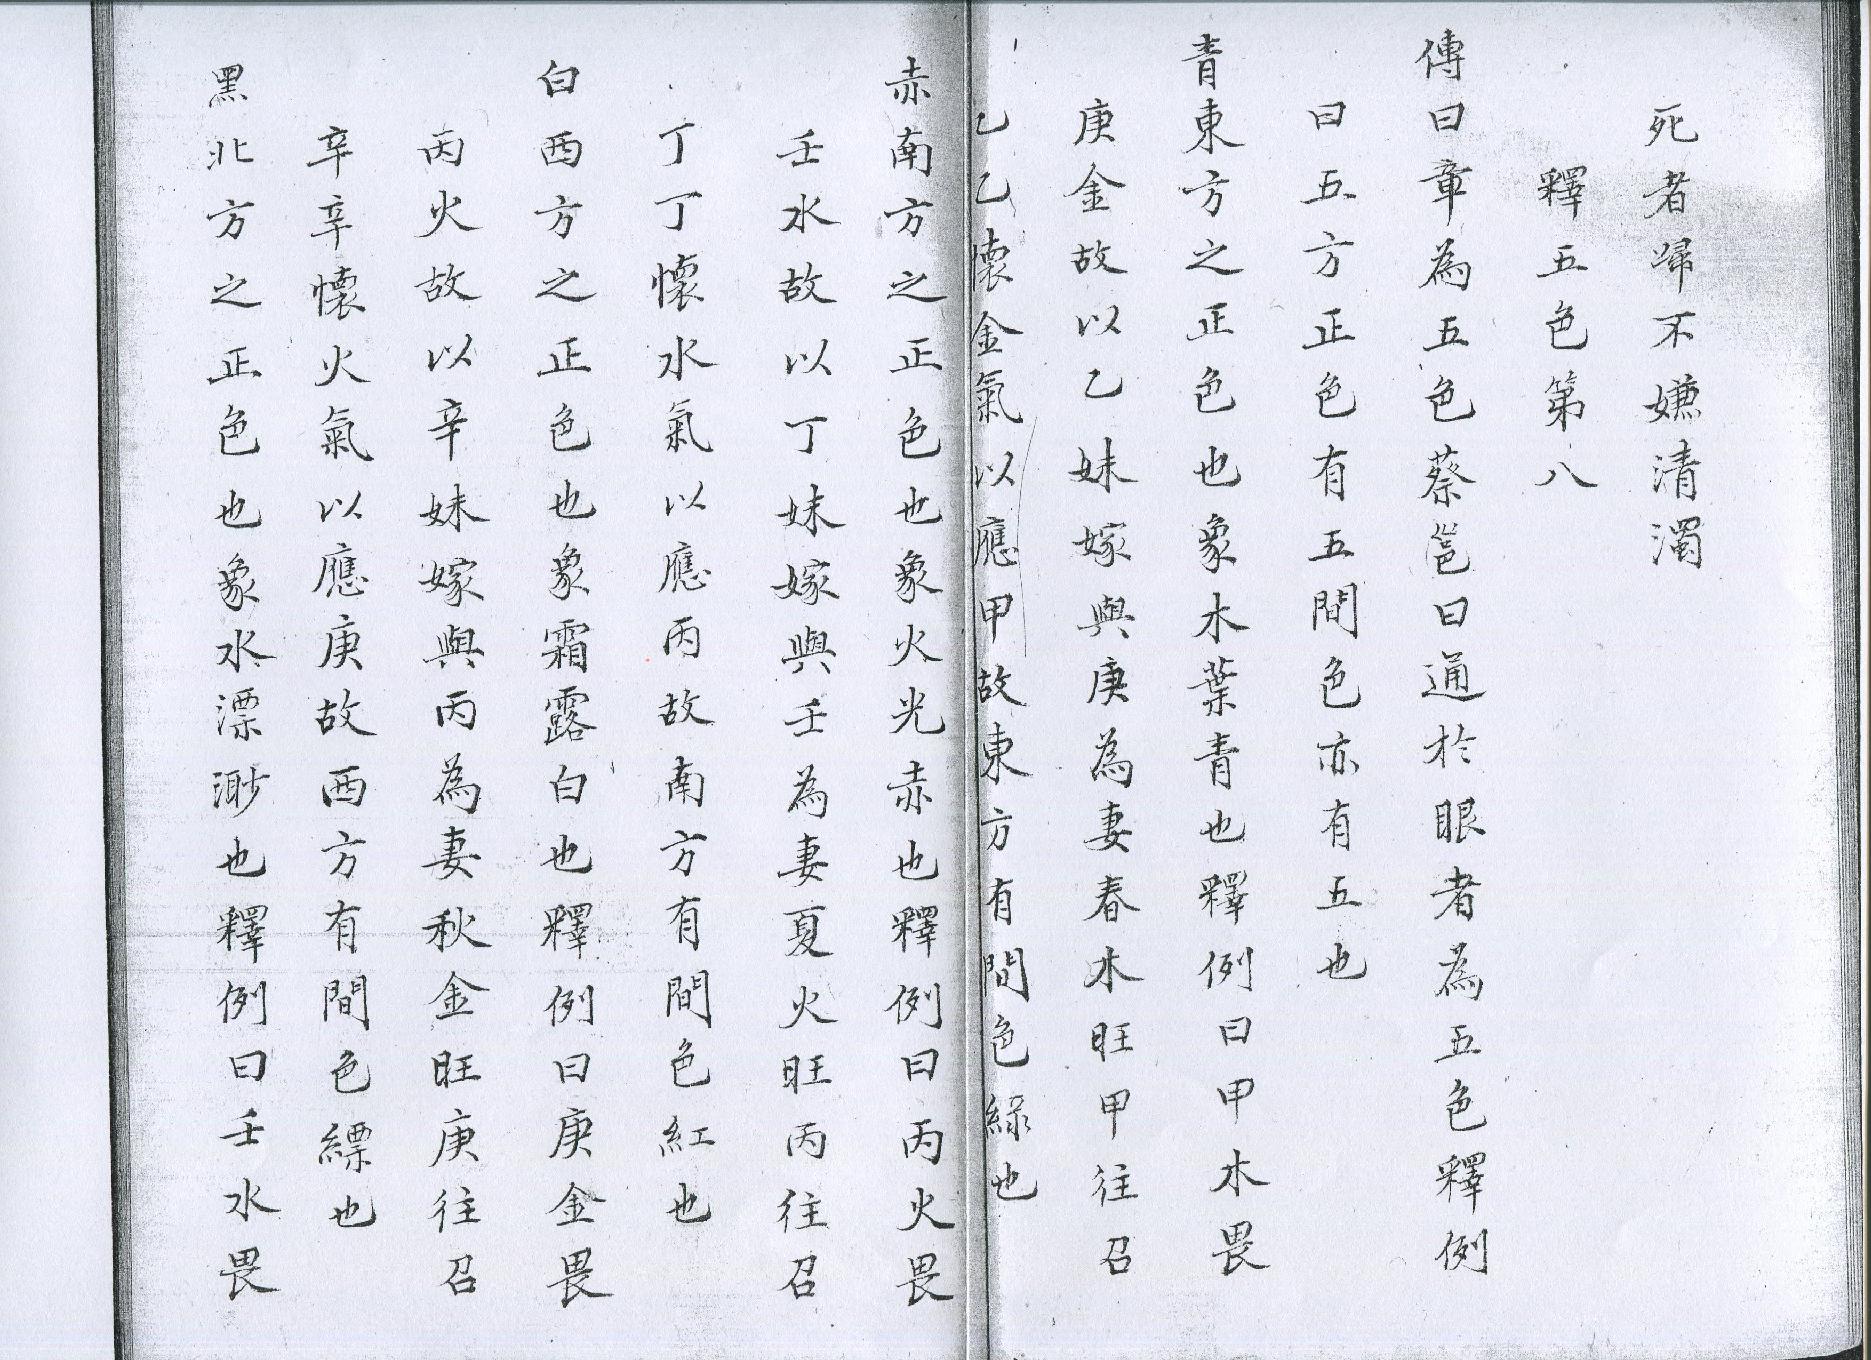 死者歸不嫌清濁
釋五色第八
傳曰章為五色蔡邕曰通於眼者為五色釋例
曰五方正色有五間色亦有五也
青東方之正色也象木葉青也釋例曰甲木畏
庚金故以乙妹嫁與庚為妻春木旺甲往召
乙乙懐金氣以應甲故東方有間色緑也
赤南方之正色也象火光赤也釋例曰丙火畏
壬水故以丁妹嫁與壬為妻夏火旺丙往召
丁丁懐水氣以應丙故南方有間色紅也
白西方之正色也象霜露白也釋例曰庚金畏
丙火故以辛妹嫁與丙為妻秋金旺庚往召
辛辛懐火氣以應庚故西方有間色縹也
黑北方之正色也象水漂渺也釋例曰壬水畏